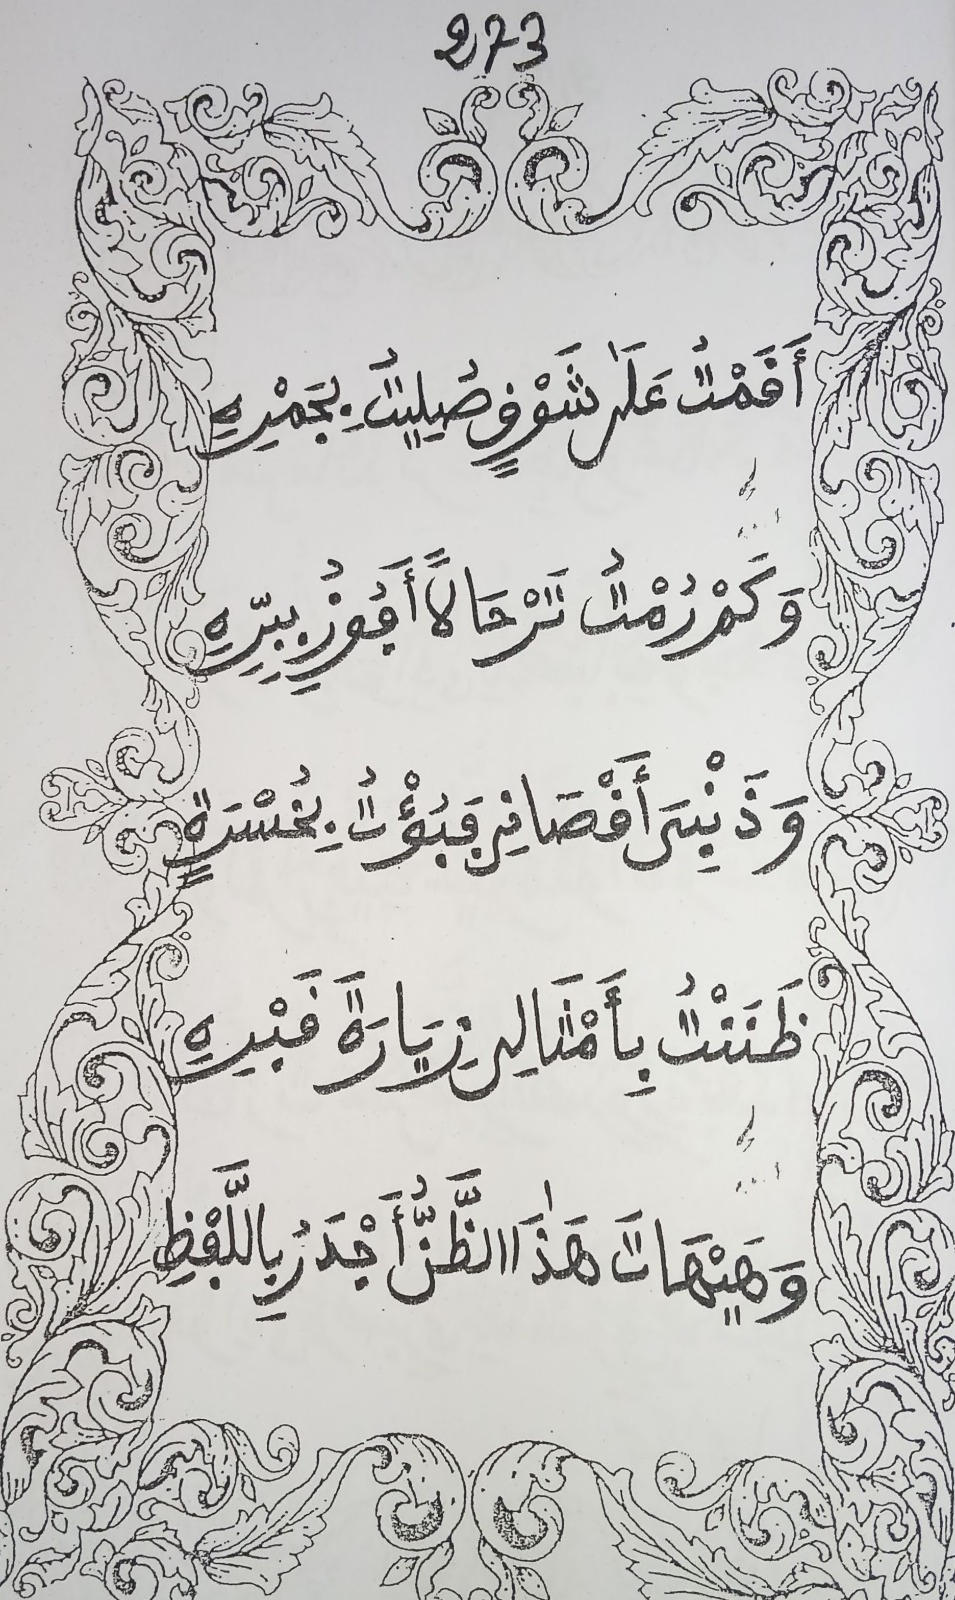 273
أَقَمْتُ عَلَىٰ شَوْقٍ صُلِيتُ بِجَمْرِهِ
وَكَمْ رُمْتُ تَرْحَالًا أَفُوزُ بِبِرِّهِ
وَذَنْبِيَ أَقْصَانِي فَبُؤْتُ بِخُسْرَةٍ
ظَنَنْتُ بِأَمْثَالِي زِيَارَةَ قَبْرِهِ
وَهَيْهَاتَ هَٰذَا الظَّنُّ أَجْدَرُ بِاللَّفْظِ